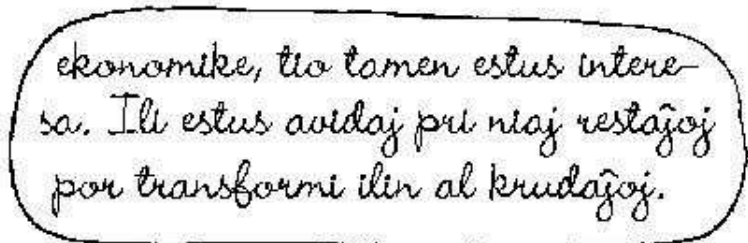 ekonomike, tio tamen estus intere-
sa. Ili estus avidaj pri niaj restaĵoj
por transformi ilin al krudaĵoj.